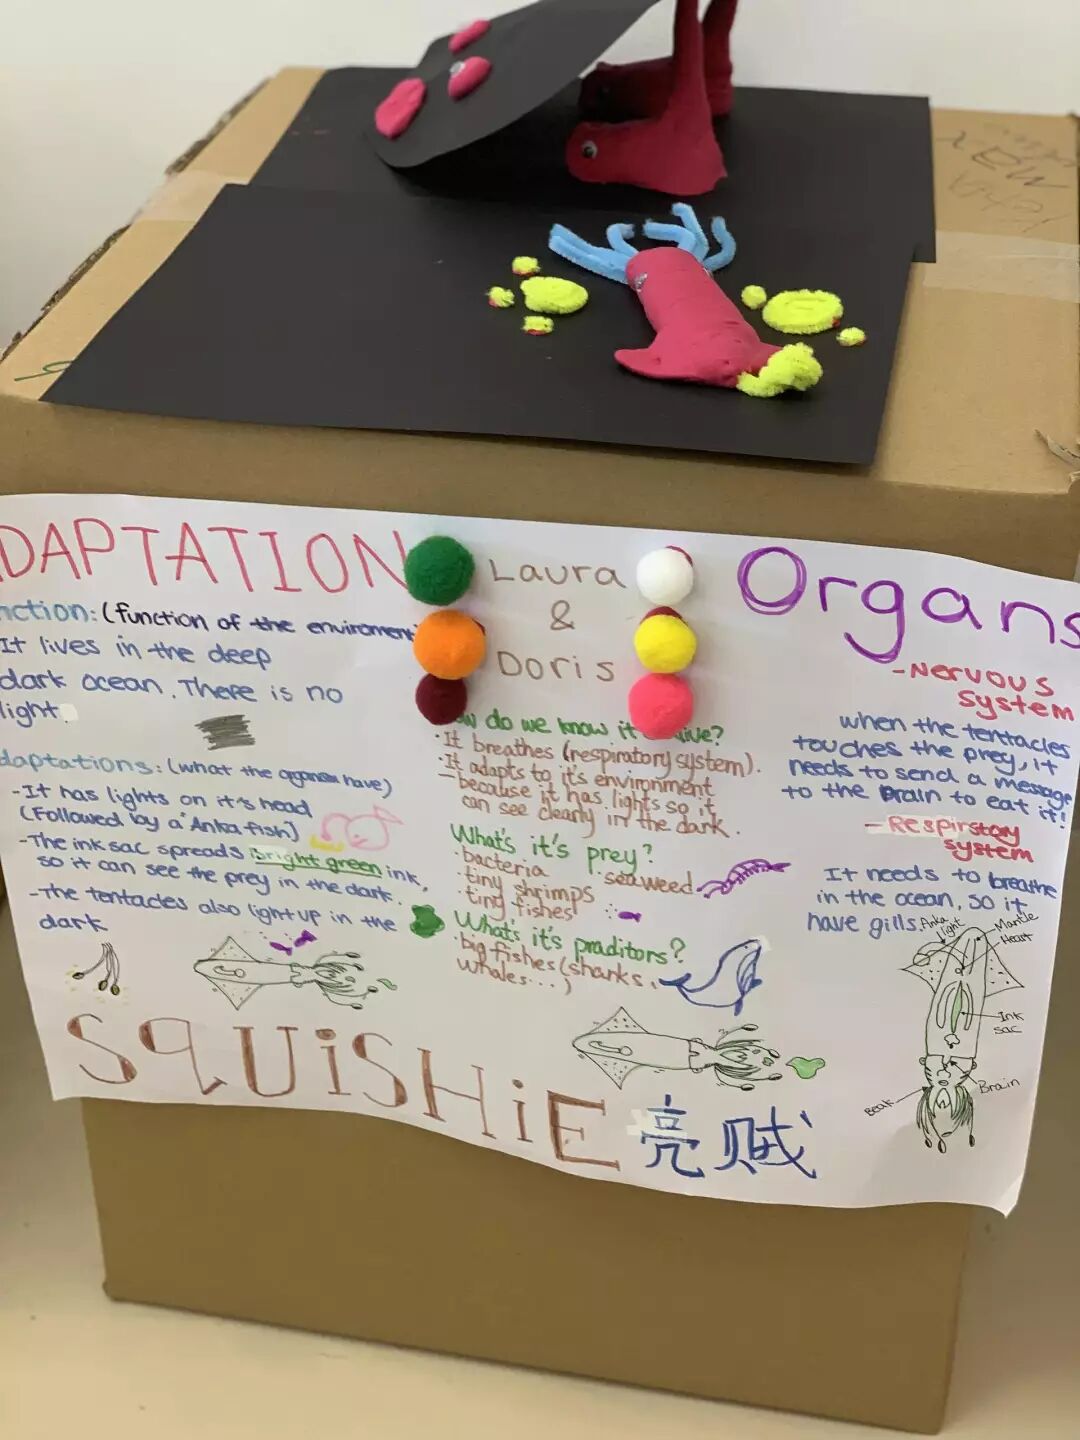 DAPTATION
nction: (function of the enviroment
It lives in the deep
dark ocean. There is no
light.
daptations: (what the organism have)
-It has lights on it's head
(Followed by a "Anka fish)
-The ink sac spreads Bright green ink,
so it can see the prey in the dark.
-The tentacles also light up in the
dark
Laura
&
Doris
How do we know it alive?
·It breathes (respiratory system).
·It adapts to it's environment
- because it has lights so it
can see clearly in the dark.
What's it's prey?
·bacteria ·seaweed
·tiny shrimps
·tiny fishes
What's it's praditors?
·big fishes (sharks,
whales...)
Organs
-Nervous
system
when the tentacles
touches the prey, it
needs to send a message
to the brain to eat it!
-Respirstory
system
It needs to breathe
in the ocean, so it
have gills.
Anka
light
Mantle
Heart
Ink
sac
Brain
Beak
SQUiSHiE 亮贼